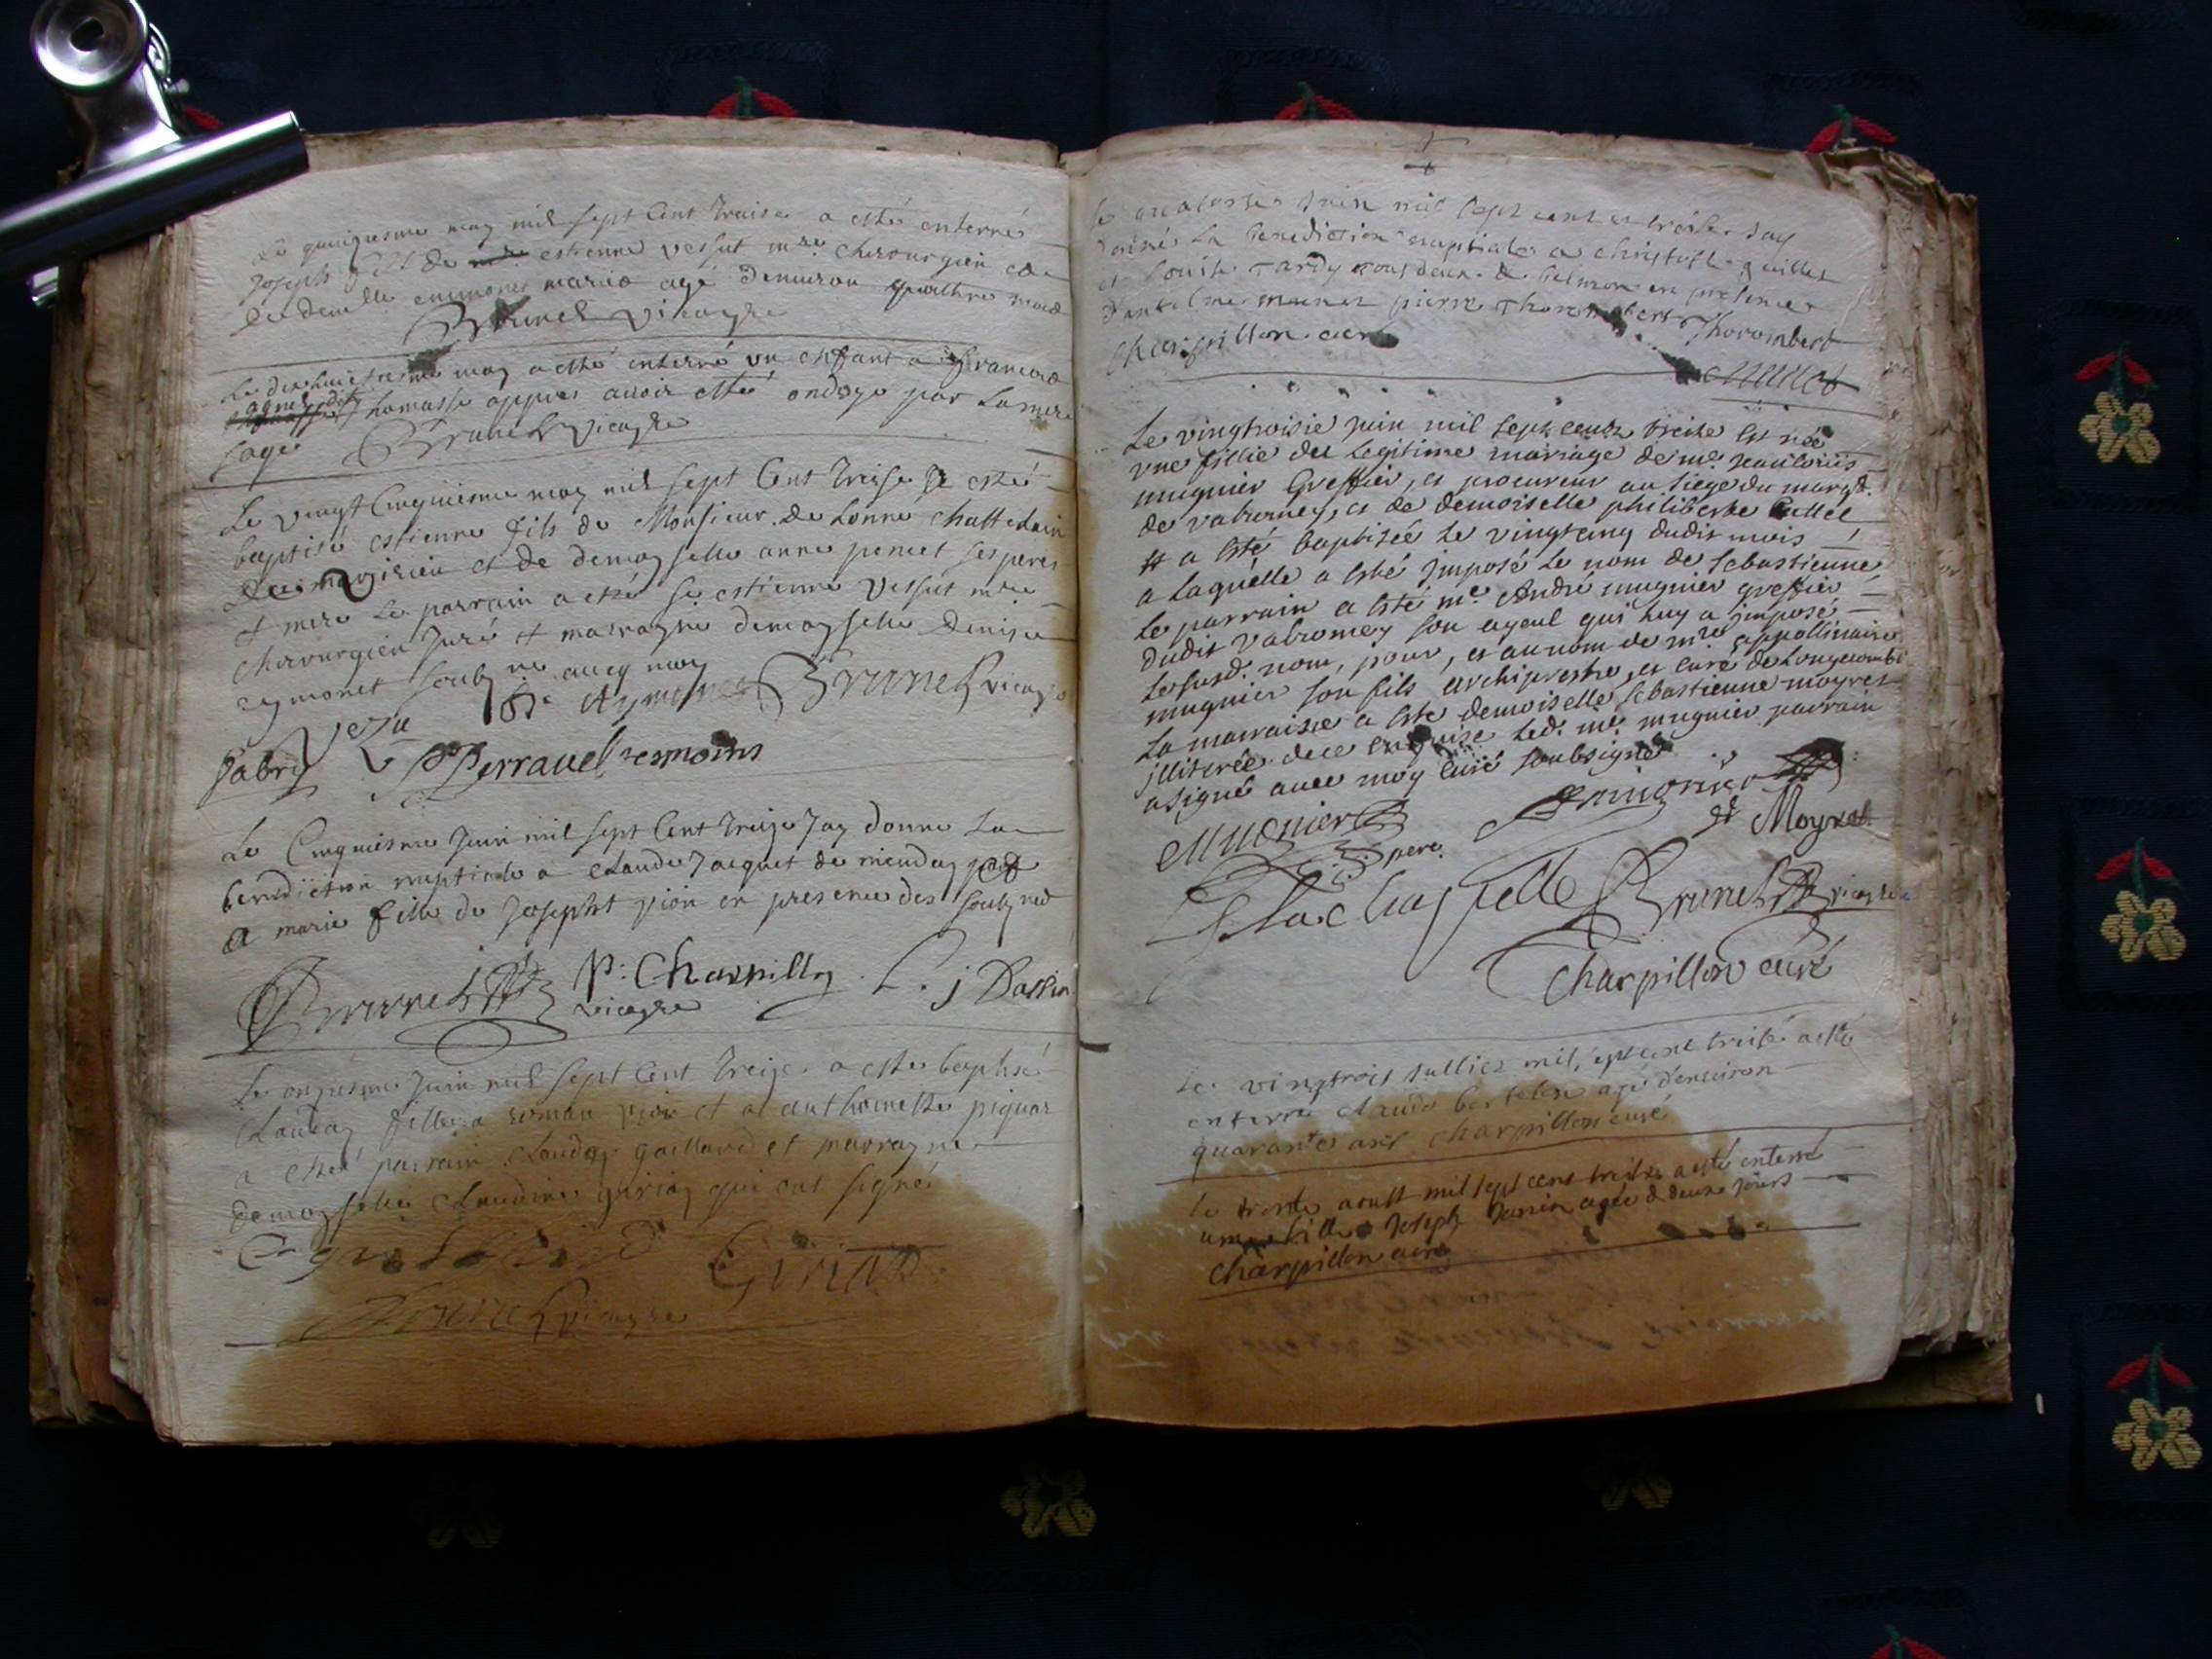 Le quinziesme may mil sept Cent Traise a esté enterré
Joseph fils de estienne vessut mre chirurgien et
de demlle emmonet mariés agé denviron quatthre mois
Brunet vicayre
Le dixhuictiesme may a esté enterré un enfant a francois
Thomasse appres avoir esté ondoyé par la mere
sage Brunet vicayre
Le vingt Cinquiesme may mil sept Cent Treise a esté
baptisé estienne fils de Monsieur de Lonne Chattelain
de et de demoyselle anne poncet ses peres
et mere Le parrain a esté sr estienne vessut mre
chirurgien Juré et marrayne demoyselle denise
eymonet soubz avec moy
Brunet vicayre
fabry Perravel tesmoins
Le Cinquiesme Juin mil sept Cent Treize Jay donné La
benediction nuptiale a Claude Jacquet de
a marie fille de Josepht vion en presence des soubz nes
Brunet P: Charpillon L. j Dassin
vicayre
Le onziesme Juin mil sept Cent Treize a esté baptisé
Clauday fille a roman vion et a anthoinette piquar
a esté parrain Clauday gaillard et marrayne
demoyselle Claudine giriaz qui ont signé
Giriaz
Brunet vicayre
Le quatorse Juin mil sept cent et treise Jay
donné La benediction nuptiale a christofle guillet
et Louise Tardy tous deux de belmon en presence
d'antelme munet pierre Thorombert Thorombert
Charpillon curé
Munet
Le vingtroisie juin mil sept cents treize est née
une fillie du Legitime mariage de me
mugnier Greffier, et procureur au siege du marqst.
de valromey, et de demoiselle philiberte
# a esté baptisée Le vingtcinq dudit mois
a Laquelle a esté jmposé Le nom de sebastienne
Le parrain a esté me. André mugnier greffier
dudit valromey son ayeul qui Luy a jmposé
Le susd. nom, pour, et au nom de mre appollinaire
mugnier son fils archiprestre, et curé de Longecombe
La marraine a esté demoiselle sebastienne moyret
jlliterée de ce enquise Led. me. mugnier parrain
a signé avec moy curé soubsigné
Mugnier
pere
Moyret
Lachapelle Brunet vicayre
Charpillon curé
Le vingtrois Jullies mil sept cent treise a esté
enterré Claude berthelon agé d'environ
quarante ans charpillon curé
Le trente aoust mil sept cens treise a esté enterré
une fille a Joseph Janin agée de deux jours
charpillon curé